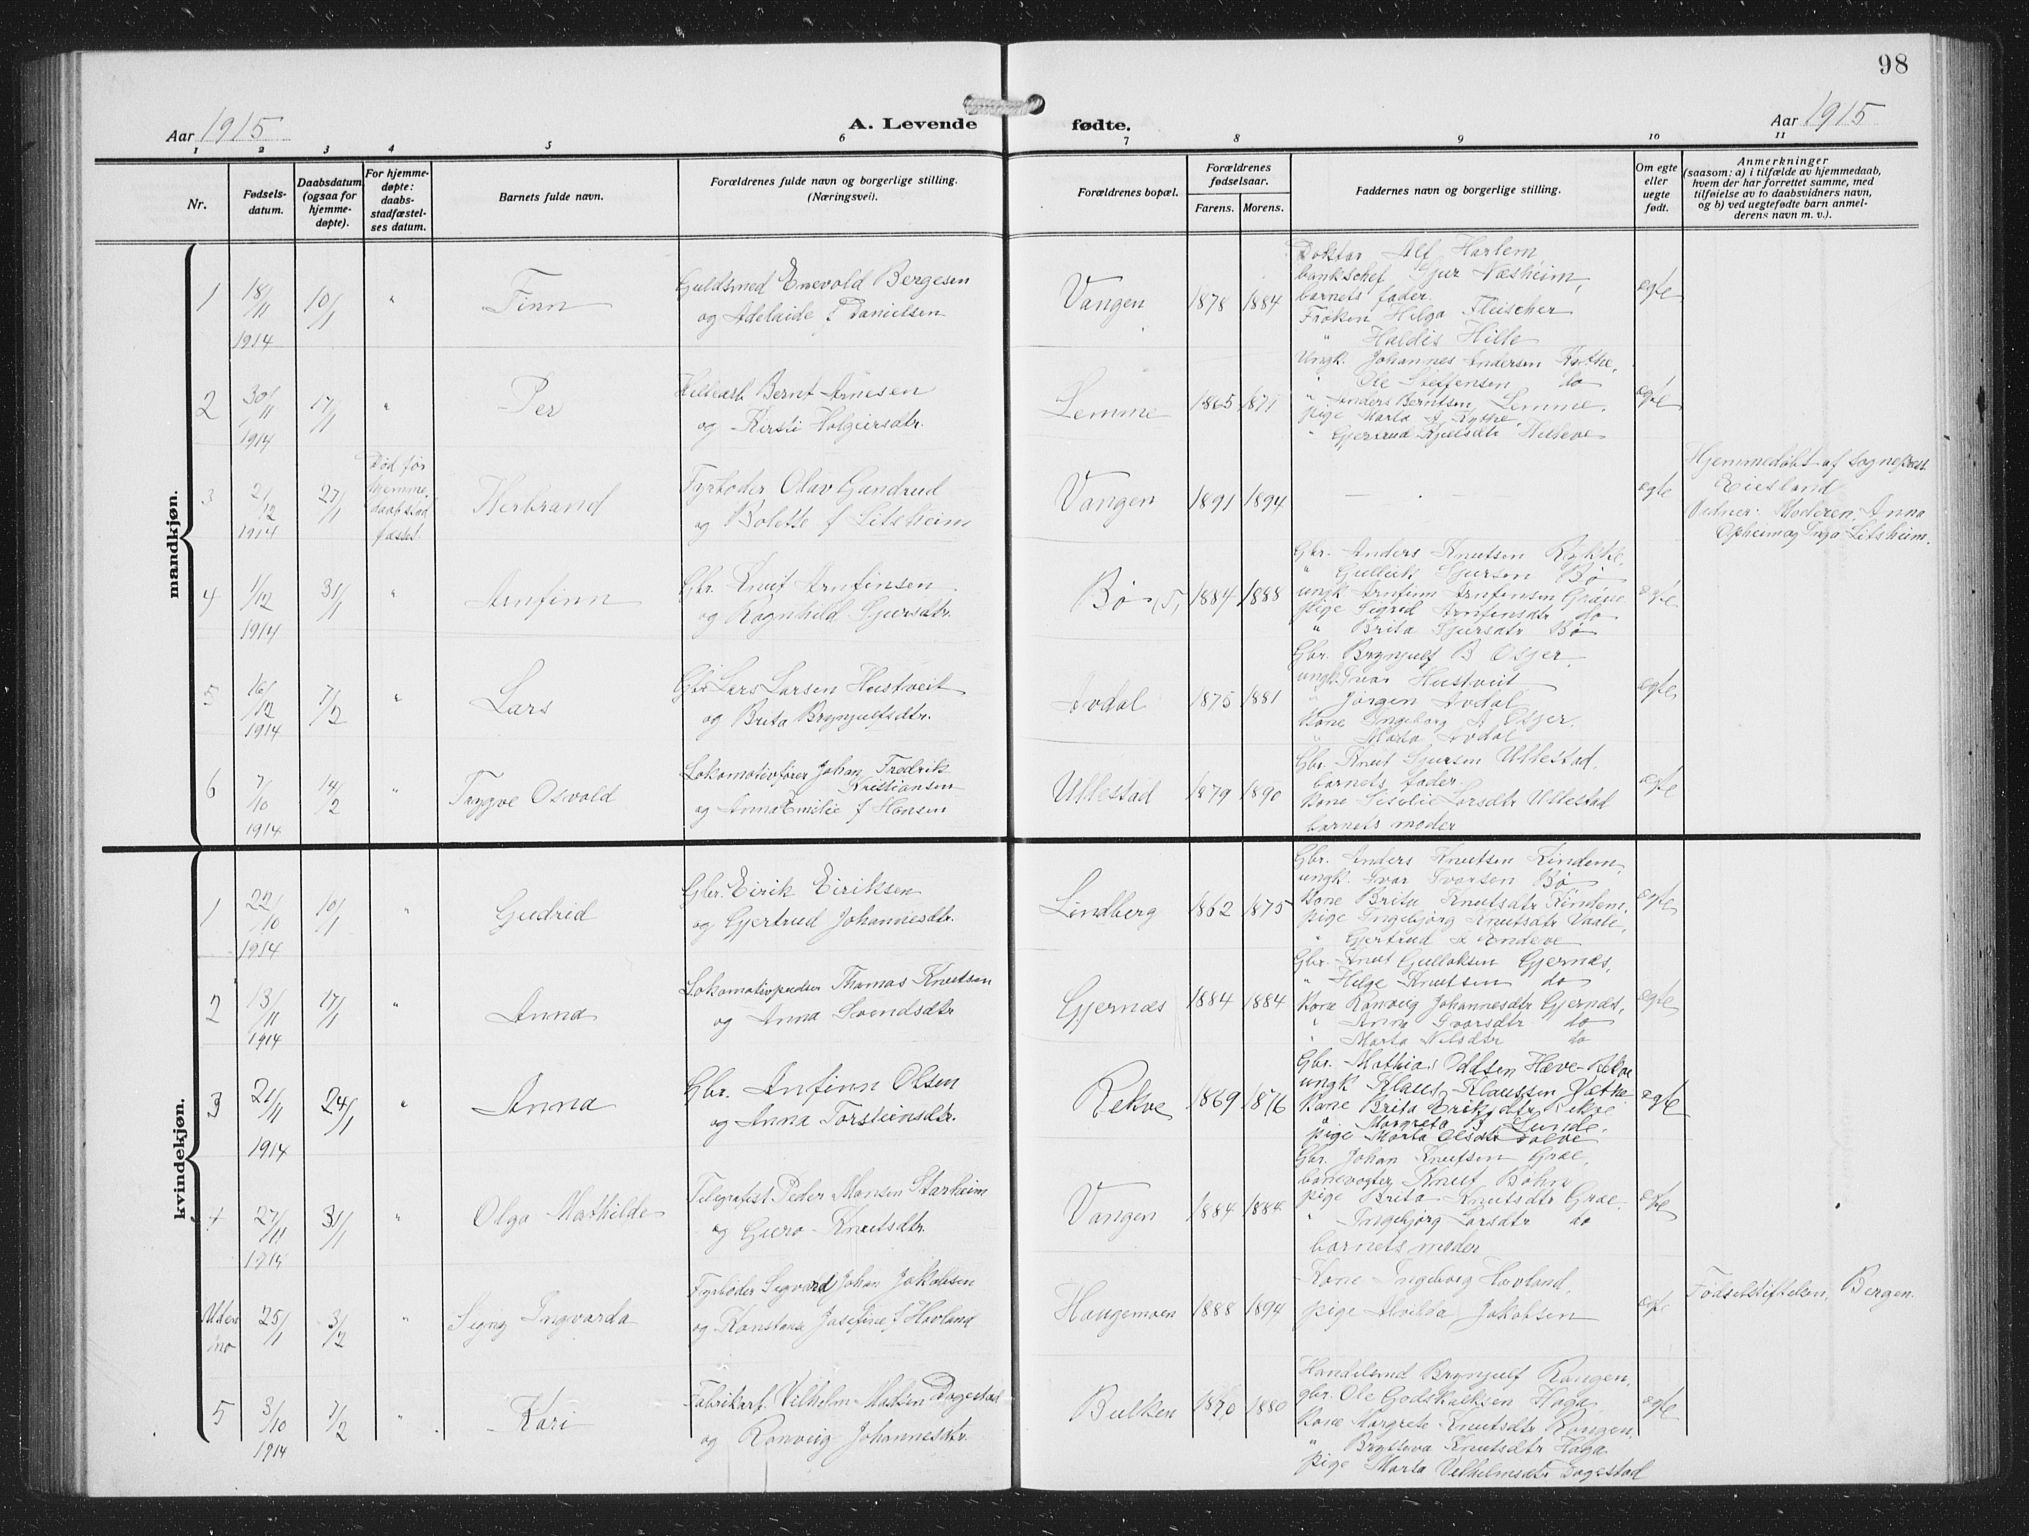 98
Aar 1915
A. Levende fødte.
Aar 1915
1 2 3 4 5 6 7 8 9 10 11
Nr.
Fødsels-
datum.
Daabsdatum
(ogsaa for
hjemme-
døpte).
For hjemme-
døpte:
daabs-
stadfæstel-
ses datum.
Barnets fulde navn.
Forældrenes fulde navn og borgerlige stilling.
(Næringsvei).
Forældrenes bopæl.
Forældrenes
fødselsaar.
Farens. Morens.
Faddernes navn og borgerlige stilling.
Om egte
eller
uegte
født.
Anmerkninger
(saasom: a) i tilfælde av hjemmedaab,
hvem der har forrettet samme, med
tilføielse av to daabsvidners navn,
og b) ved uegtefødte barn anmel-
derens navn m. v.).
mandkjøn.
1
18/11
1914
10/1
"
Finn
Guldsmed Enevold Bergesen
og Adelaide f Danielsen
Vangen
1878 1884
Doktor Alf Harlem
bankchef Sjur Næsheim,
barnets fader.
Frøken Helga Fleischer
" Haldis Hille
egte
2
30/11
1914
17/1
"
Per
Bernt Arnesen
og Kirsti Holgeirsdtr.
Lemme
1865 1871
Ungk. Johannes Andersen Kythe,
" Ole Steffensen do
" Anders Berntsen Lemme.
pige Marta A Kythe,
" Gjertrud
egte
3
2/12
1914
27/1
Død før
hjemme
daab stad
fæstet.
Herbrand
Fyrbøder Olav Gandrud
og Bolette f Litsheim
Vangen
1891 1894
- - -
egte
Hjemmedøbt af sognepræst
Eiesland
Vidner: Moderen, Anna
Opheim og Inga Litsheim.
4
1/12
1914
31/1
"
Arnfinn
Gbr. Knut Arnfinsen
og Ragnhild Sjursdtr.
Bø
1884 1888
Gbr. Anders Knutsen
" Gulleik Sjursen Bø
ungk Arnfinn Arnfinsen Grove
pige Sigrid Arnfinsdtr do
" Brita Sjursdtr Bø
egte
5
16/12
1914
7/2
"
Lars
Gbr Lars Larsen Hustveit
og Brita Brynjulfsdtr.
Avdal
1875 1881
Gbr. Brynjulf B Osger,
ungk Ivar Hustveit
" Jørgen Avdal
Kone Ingeborg A Osger.
" Marta Avdal
egte
6
7/10
1914
14/2
"
Trygve Osvald
Lokomotivfører Johan Fredrik
Kristiansen
og Anna Emilie f Hansen
Ullestad
1879 1890
Gbr. Knut Sjursen Ullestad,
barnets fader.
Kone Sesilie Larsdtr Ullestad
barnets moder
egte
kvindekjøn.
1
22/10
1914
10/1
"
Gudrid
Gbr. Eirik Eiriksen
og Gjertrud Johannesdtr.
Lindberg
1862 1875
Gbr. Anders Knutsen Rindem,
ungk. Ivar Ivarsen Bø
Kone Brita Knutsdtr Rindem,
pige Ingebjørg Knutsdtr
" Gjertrud A Endeve
egte
2
13/11
1914
17/1
"
Anna
Lokomotivpudser Thomas Knutsen
og Anna Svendsdtr
Gjernæs
1884 1884
Gbr. Knut Gullaksen Gjernæs,
" Helge Knutsen do
Kone Ranveig Johannesdtr Gjernæs,
" Anna Ivarsdtr do
" Marta Nilsdtr do
egte
3
21/11
1914
24/1
"
Anna
Gbr. Anfinn Olsen
og Anna Torsteinsdtr.
Rekve
1869 1876
Gbr. Mathias Oddsen Hæve Rekve
ungk Klaus Klaussen
Kone Brita Eriksdtr Rekve
" Margreta B Lunde.
pige Marta Olsdtr
egte
4
27/11
1914
31/1
"
Olga Mathilde
Telegrafist Peder Monsen Starheim
og Guro Knutsdtr.
Vangen
1884 1884
Gbr. Johan Knutsen Græ,
banevogter Knut
pige Brita Knutsdtr Græ
" Ingebjørg Larsdtr do
barnets moder
egte
25/1
3/2
"
Signy Ingvarda
Fyrbøder Sigvard Johan Jakobsen
og Konstanse Josefine f Hovland
Haugemoen
1888 1894
Kone Ingeborg Hovland,
pige Alvilda Jakobsen
egte
Fødselsstiftelsen, Bergen.
5
3/10
1914
7/2
"
Kari
Fabrikarb. Vilhelm Dagestad
og Ranveig Johannesdtr.
Bulken
1870 1880
Handelsmd Brynjulf Rongen,
gbr. Ole Godskalksen Haga
Kone Margrete Knutsdtr Rongen,
" Knutsdtr Haga
pige Marta Vilhelmsdtr Dagestad
egte